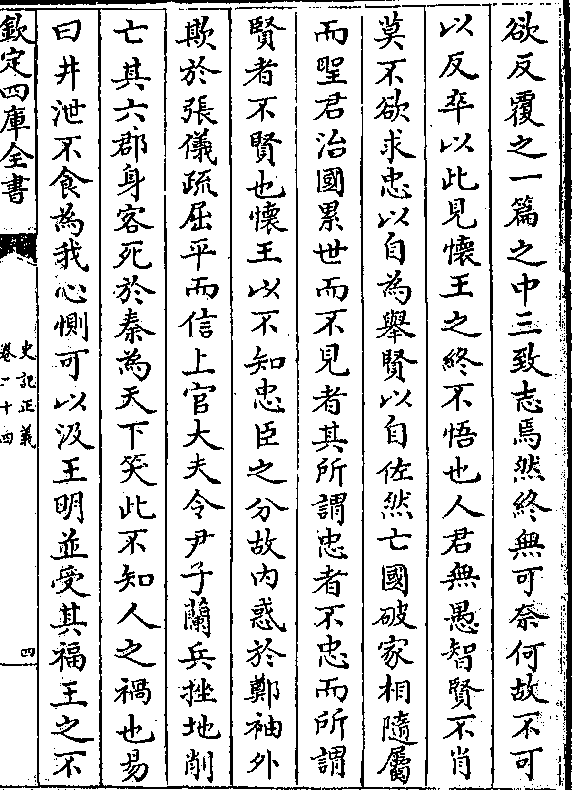 欲反覆之一篇之中三致志焉然終無可奈何故不可
以反卒以此見懷王之終不悟也人君無愚智賢不肖
莫不欲求忠以自為舉賢以自佐然亡國破家相隨屬
而聖君治國累世而不見者其所謂忠者不忠而所謂
賢者不賢也懷王以不知忠臣之分故內惑於鄭袖外
欺於張儀疏屈平而信上官大夫令尹子蘭兵挫地削
亡其六郡身客死於秦為天下笑此不知人之禍也易
曰井泄不食為我心惻可以汲王明並受其福王之不
欽定四庫全書
史記正義
卷八十四
四